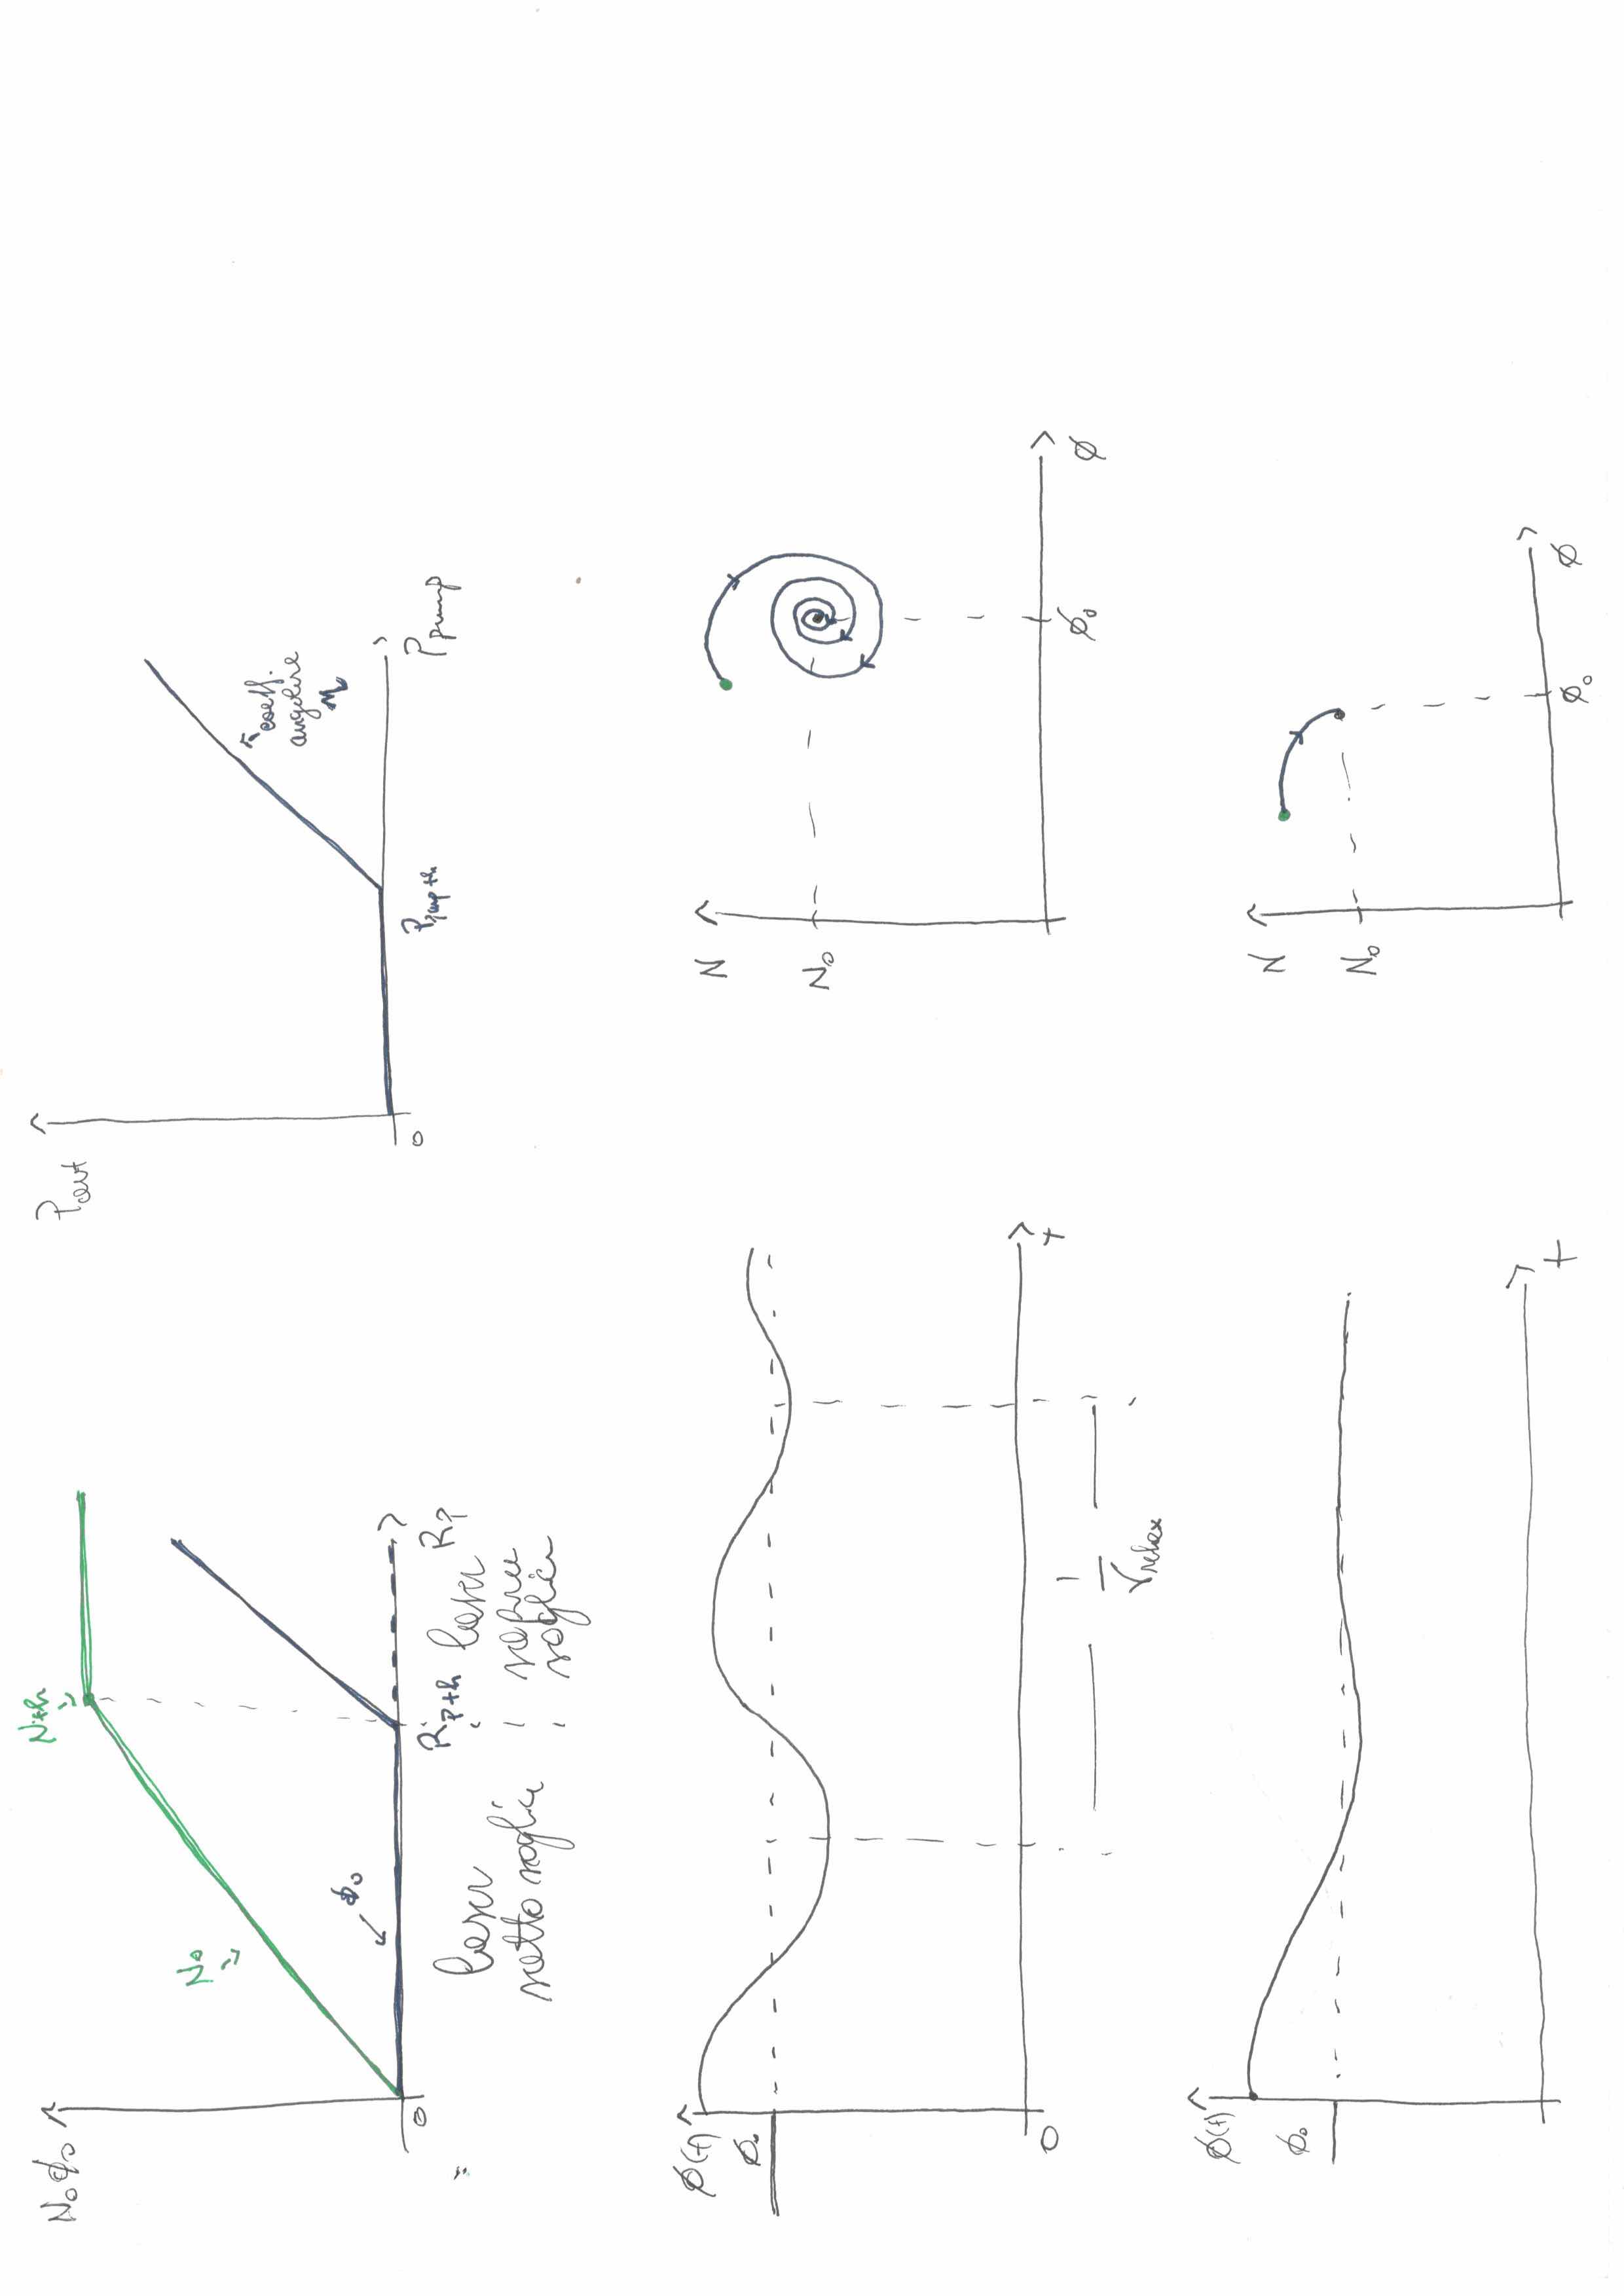 N₀ ϕ₀
Nth
N₀
ϕ₀
0
Rpth
Rp
laser
sotto soglia
laser
sopra
soglia
Pout
coeff.
angolare
η
0
Ppump th
Ppump
ϕ(t)
ϕ₀
0
t
1
νrelax
N
N₀
ϕ₀
ϕ
ϕ(t)
ϕ₀
t
N
N₀
ϕ₀
ϕ